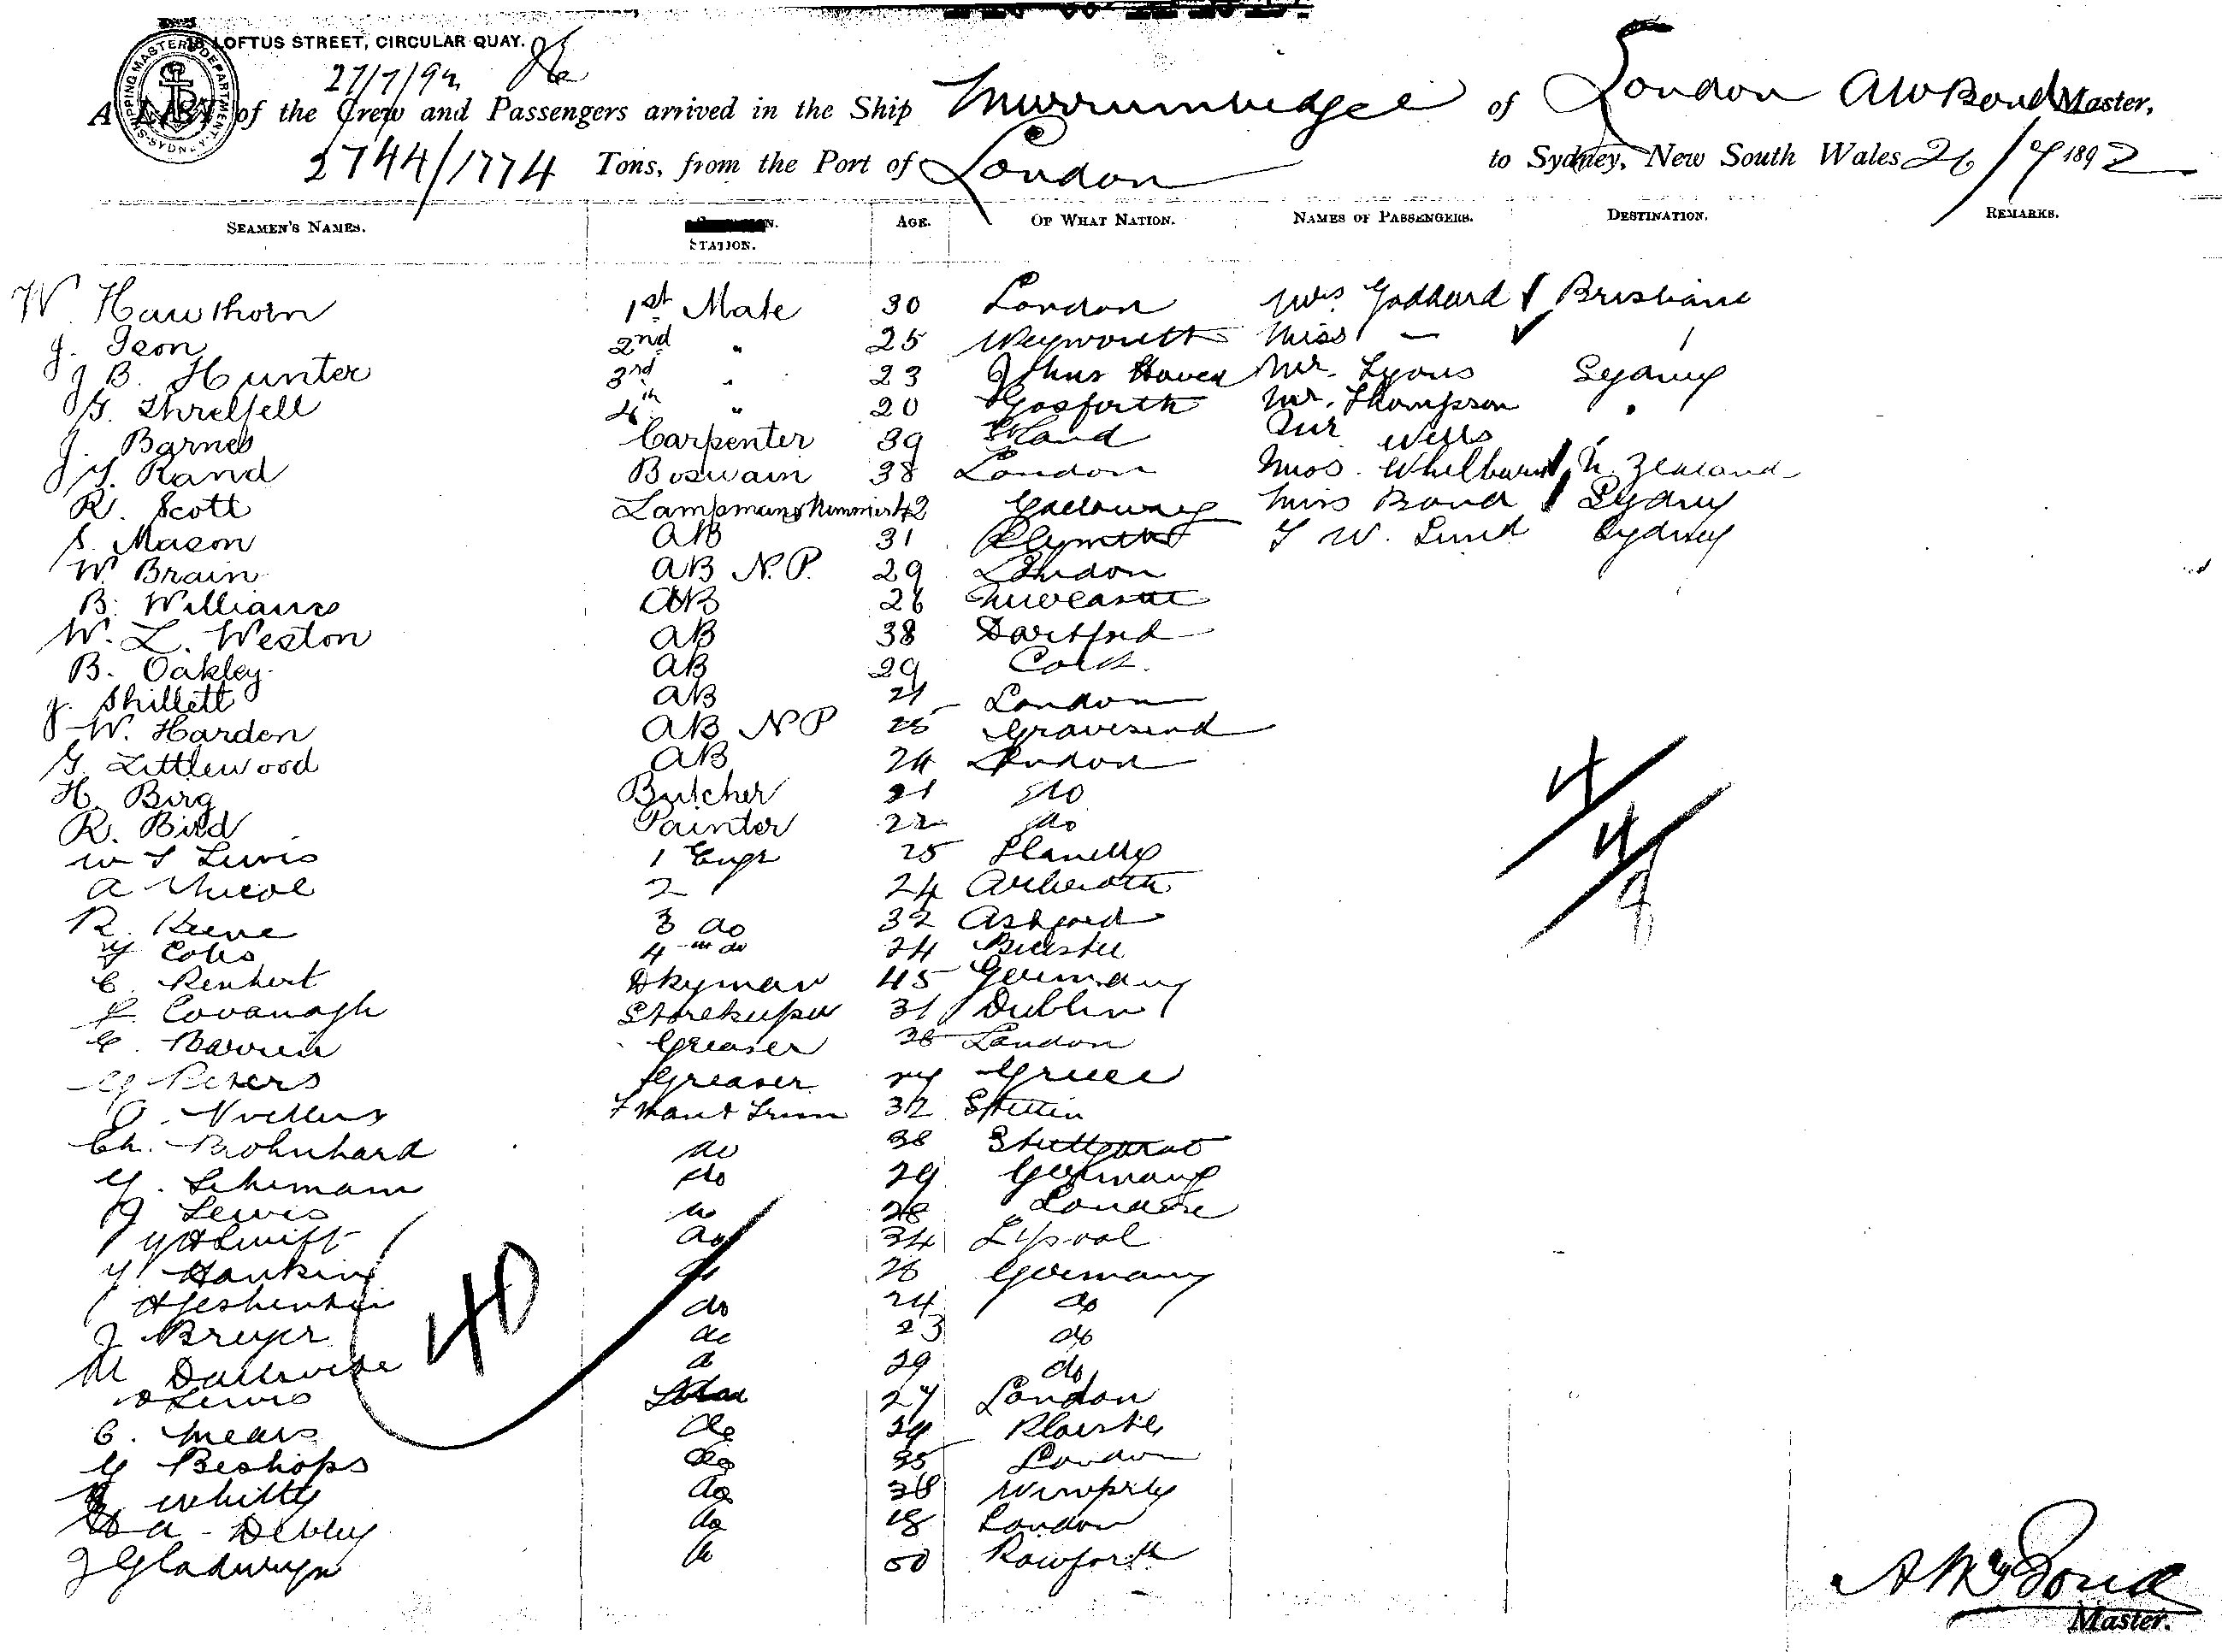 18 LOFTUS STREET, CIRCULAR QUAY.
SHIPPING MASTER'S DEPARTMENT SYDNEY
27/7/92
A LIST of the Crew and Passengers arrived in the Ship Murrumbidgee of London A W Bond Master,
2744/1774 Tons, from the Port of London to Sydney, New South Wales 26/7 1892
SEAMEN'S NAMES. STATION. AGE. OF WHAT NATION. NAMES OF PASSENGERS. DESTINATION. REMARKS.
W. Hawthorn 1st Mate 30 London Mrs Goddard Brisbane
J. Ieon 2nd " 25 Weymouth Miss —
J B. Hunter 3rd " 23 Mr. Lyons Sydney
G. Threlfell 4th " 20 Gosforth Mr. Thompson "
J. Barnes Carpenter 39 Mr Wells
Y. Rand Boswain 38 London Mrs. N. Zealand
R. Scott Lamptrimmer 42 Galloway Miss Bond Sydney
S. Mason AB 31 Plymth Y W. Lund Sydney
W. Brain AB N.P. 29 London
B. Williams AB 26 Newcastle
W. L. Weston AB 38 Dartford
B. Oakley AB 29 Cork.
J. Shillett AB 21 London
W. Harden AB N P 25 Gravesend
G. Littlewood AB 24 London
H. Birg Butcher 21 do
R. Bird Painter 22 do
W T Lewis 1 Engr 25 Llanelly
A Nicol 2 24 Arbroath
R. Keene 3 do 32 Ashford
Coles 4th do 24 Bicester
C. Renhert Dkyman 45 Germany
Cavanagh Storekeeper 31 Dublin
C. Greaser 36 London
G Peters Greaser Greece
Fman & Trim 32 Stettin
Ch. Bohnhard do 38 Stuttgart
G. Lehmann do 29 Germany
J Lewis do 28 London
Swift do 34 L'pool
do 26 Germany
do 24 do
J Breyer do 23 do
M do 29 do
Lewis 27 London
C. Mears do 24
G Bishops do 35 London
Whitty do 38
A - Debley do 18 London
J Gladwyn do 50
40
4/
4/
A W Bond
Master.